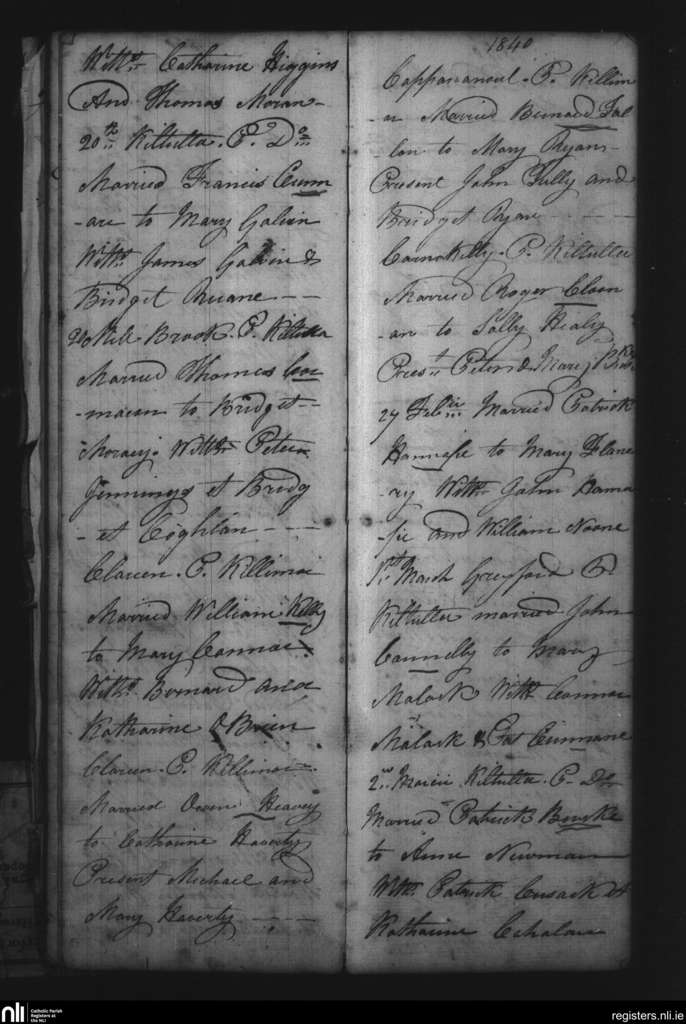 Witts. Catharine Higgins
And Thomas Moran -
20th Kiltulla. P. Do
Married Francis Cunn
-are to Mary Galvin
Witts. James Galvin &
Bridget Ruane - -
Brook. P. Kiltulla
Married Thomas Cor
to Bridget
Witts Peter
Jennings et Bridg
-et Coghlan - -
Clareen. P. Killimor
Married William Kelly
to Mary Connor
Witts. Bernard and
Katharine O Brien
Clareen. P. Killimor
Married Owen Heavey
to Catharine Haverty
Present Michael and
Mary Haverty - -
1840
P. Killim
Married Bernard Fal
-lon to Mary Ryan -
Present John Tully and
Bridget Ryan
P. Kiltulla
Married Roger Cloon
-an to Sally Healy
Prest. Peter & Mary
27 Married Patrick
Hannafie to Mary Flane
-ry Witts. John Hana
-fie and William Noone
1st March P.
Kiltulla married John
Connelly to Mary
Malark Witts Connor
Malark & Pat Cunnane
2nd Kiltulla. P. Do
Married Patrick Burke
to Anne Newman
Witts. Patrick Cusack &
Katharine
nli
Catholic Parish
Registers at
the NLI
registers.nli.ie